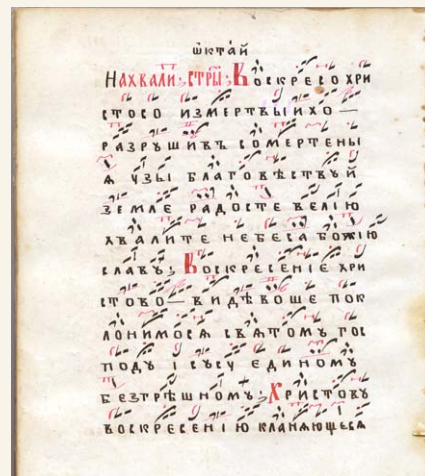 ѡктай
На хвали: стры: Воскресо хри
стосо измертвыихо
разрꙋшивъ сомертены
я ꙋзы благовѣствꙋй
земле радосте велїю
хвалите небеса божїю
славꙋ: Воскресенїе хри
стово видѣвоше пок
лонимося святомъ гос
подꙋ ісꙋсꙋ единомꙋ
безгрѣшномꙋ: Христовꙋ
воскресенїю кланяющеся